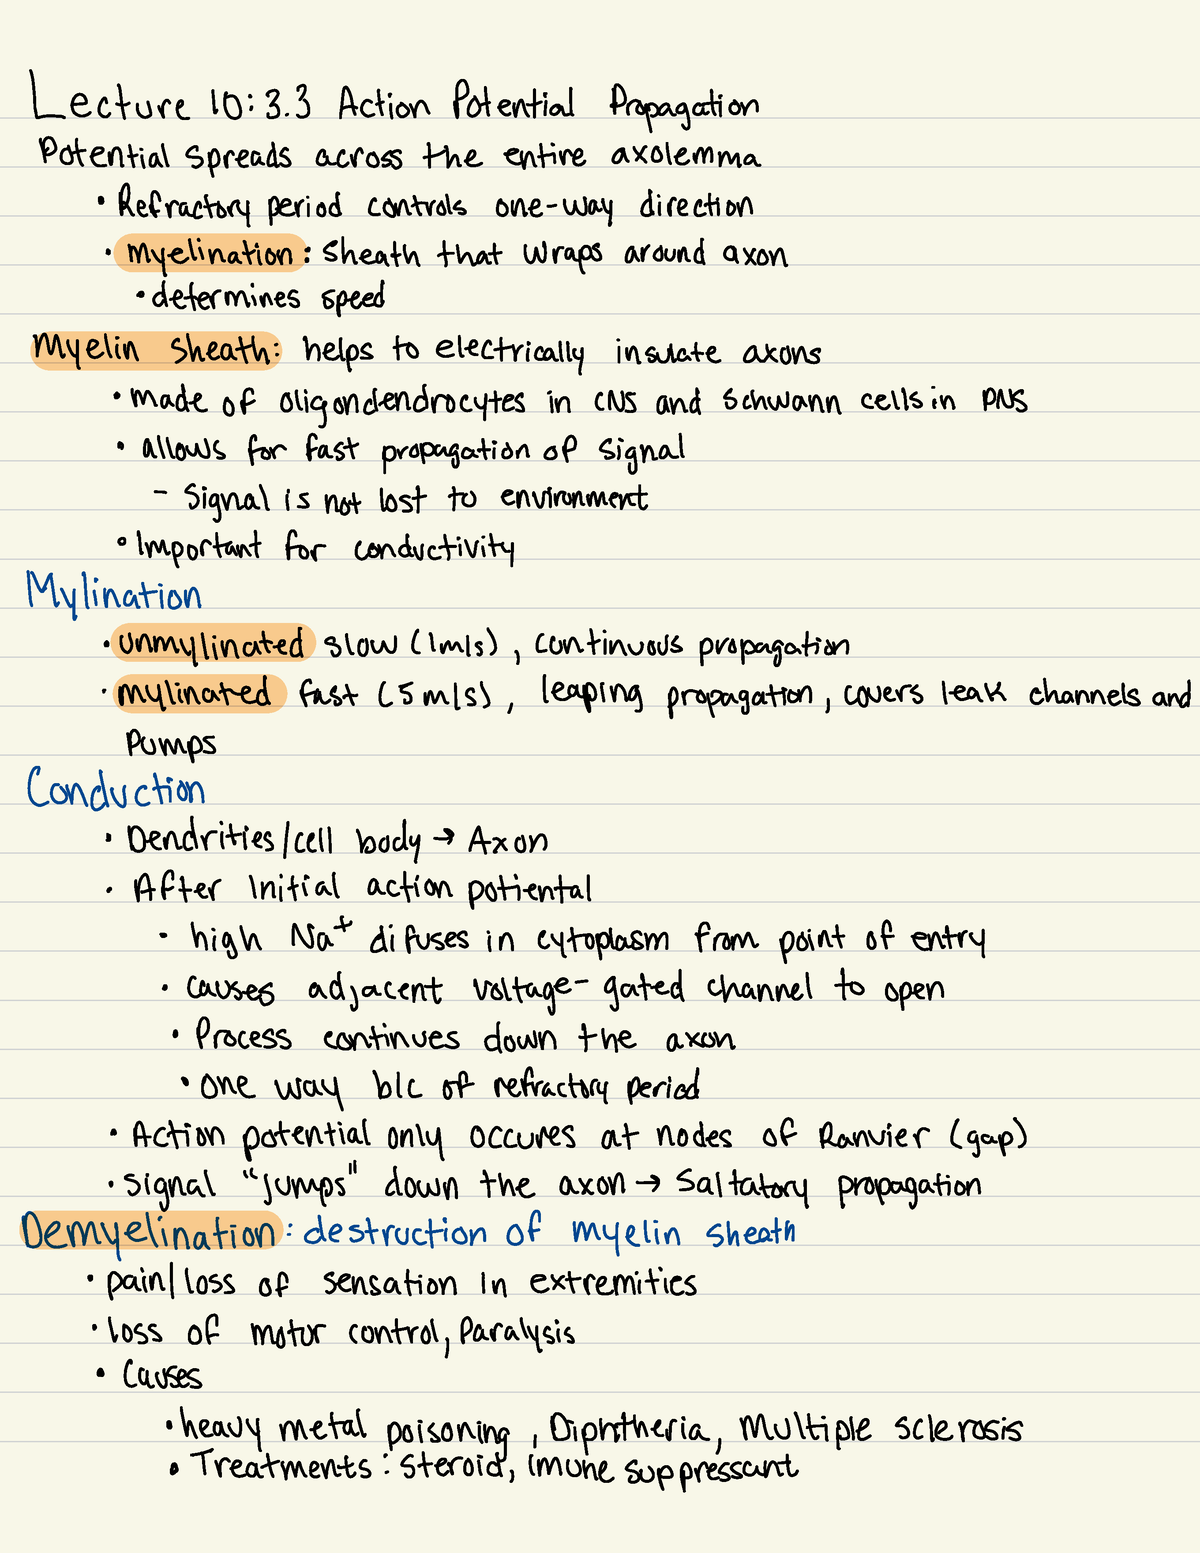 Lecture 10: 3.3 Action Potential Propagation
Potential spreads across the entire axolemma
• Refractory period controls one-way direction
• Myelination: Sheath that wraps around axon
• determines speed
Myelin sheath: helps to electrically insulate axons
• made of oligondendrocytes in CNS and Schwann cells in PNS
• allows for fast propagation of signal
- Signal is not lost to environment
• Important for conductivity
Mylination
• unmylinated slow (1m/s), continuous propagation
• mylinated fast (5 m/s), leaping propagation, covers leak channels and
Pumps
Conduction
• Dendrities/cell body → Axon
• After Initial action potiental
• high Na⁺ difuses in cytoplasm from point of entry
• causes adjacent voltage-gated channel to open
• Process continues down the axon
• One way b/c of refractory period
• Action potential only occures at nodes of Ranvier (gap)
• Signal "jumps" down the axon → Saltatory propagation
Demyelination: destruction of myelin sheath
• pain/loss of sensation in extremities
• loss of motor control, Paralysis
• Causes
• heavy metal poisoning, Diphtheria, Multiple sclerosis
• Treatments: Steroid, imune suppressant